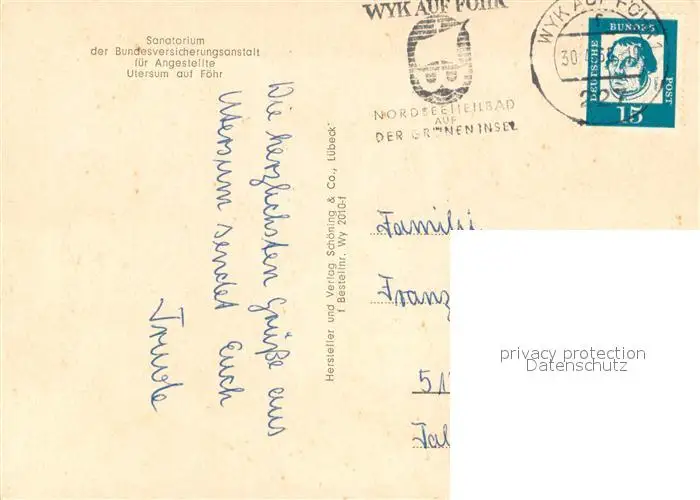 Sanatorium
der Bundesversicherungsanstalt
für Angestellte
Utersum auf Föhr
Die herzlichsten Grüße aus
Utersum sendet Euch
Trude
Hersteller und Verlag Schöning & Co., Lübeck
f Bestellnr. Wy 2010-f
WYK AUF FÖHR
NORDSEEHEILBAD
AUF
DER GRÜNEN INSEL
WYK AUF FÖHR 1
30
227
DEUTSCHE
BUNDES
POST
15
Famili
Franz
51
privacy protection
Datenschutz